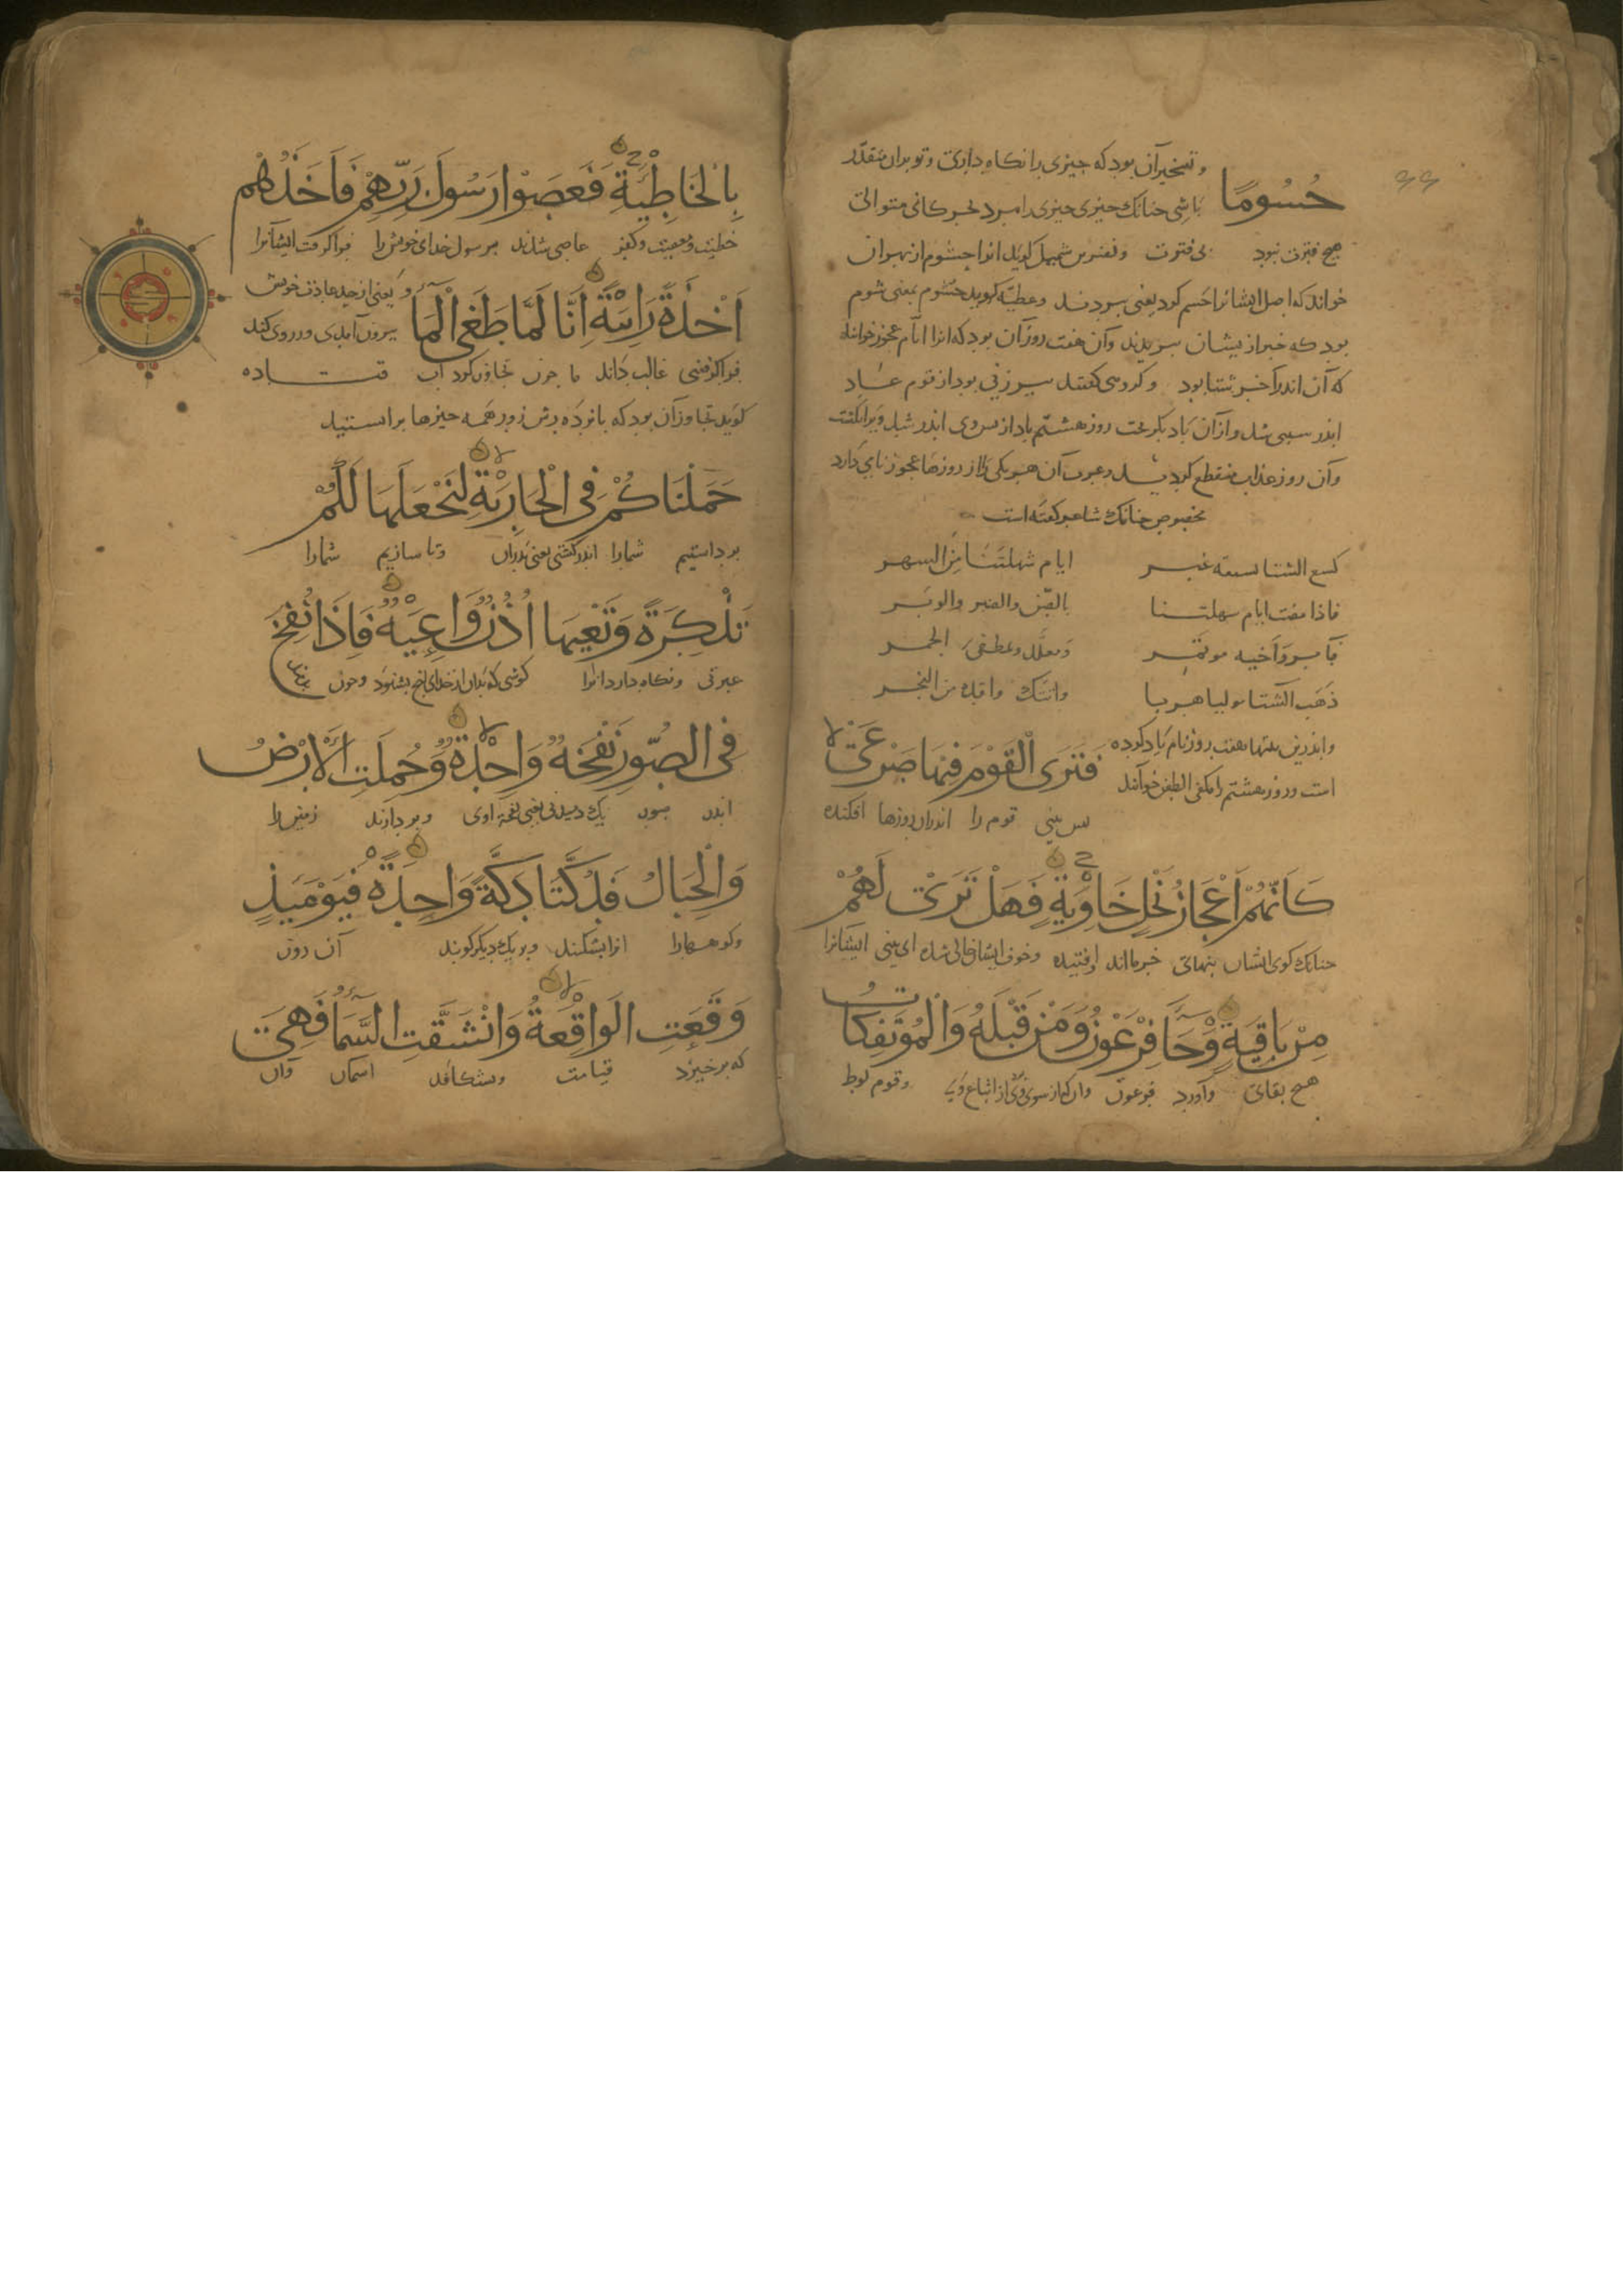 ۶۶
و تسخیر آن بود که چیزی را نگاه داری و تو بدان مقدّر
حُسُومًا
باشی چنانک چیزی چیزی را مبرد خبر کانی متوالی
هیچ فترت نبود بی فترت و نضر بن شمیل گوید انرا حسوم از بهر آن
خواند که اصل ایشانرا حسم کرد یعنی ببریدند و عطیّه گوید حسوم بمعنی شوم
بود که خبر از یشان ببریدند و آن هفت روز آن بود که انرا ایّام عجوز خوانند
که آن اندر آخر شتا بود و گروهی گفتند پیر زنی بود از قوم عاد
اندر سپی شد و از آن باد بگریخت روز هشتم باد از پس وی اندر شد و ویرا بکشت
و آن روز عذاب منقطع گردید و عرب آن هر یکی را از روزهاء عجوز نامی دارد
بخصوص چنانک شاعر گفته است
کسع الشتا بسبعة غبر ایام شهلتنا من الشهر
فاذا مضت ایام شهلتنا بالصّن والصنبر والوبر
وبآمر واخیه موتمر ومعلّل وبمطفی الجمر
ذهب الشتا مولیا هربا واتتک واقدة من النجر
و اندرین بیتها هفت روز نام یاد کرده
است و روز هشتم را مکفی الظعن خوانند
فَتَرَى الْقَوْمَ فِيهَا صَرْعَىٰ
پس بینی قوم را اندران روزها افکنده
كَأَنَّهُمْ أَعْجَازُ نَخْلٍ خَاوِيَةٍ فَهَلْ تَرَىٰ لَهُمْ
چنانک گوی ایشان بنهای خرمااند اوفتیده و خوف ایشان خالی شده ای بینی ایشانرا
مِنْ بَاقِيَةٍ وَجَا فِرْعَوْنُ وَمَنْ قَبْلَهُ وَالْمُؤْتَفِكَاتُ
هیچ بقای و آورد فرعون وان کماز سوی وی از اتباع وی و قوم لوط
بِالْخَاطِئَةِ فَعَصَوْا رَسُولَ رَبِّهِمْ فَأَخَذَهُمْ
خطیت و معصیت و کفر عاصی شدند مر رسول خدای خویش را فرا گرفت ایشانرا
أَخْذَةً رَابِيَةً إِنَّا لَمَّا طَغَى الْمَا
و یعنی از حد عادت خویش
بیرون آمدی و در وی کند
فرا گرفتنی غالب داند ما چون تجاوز کرد آب قتاده
گوید تجاوز آن بود که پانزده رش زور همه چیزها بر ایستید
حَمَلْنَاكُمْ فِي الْجَارِيَةِ لِنَجْعَلَهَا لَكُمْ
برداشتیم شما را اندر کشتی یعنی پدران و تا سازیم شما را
تَذْكِرَةً وَتَعِيَهَا أُذُنٌ وَاعِيَةٌ فَإِذَا نُفِخَ
عبرتی و نگاه دارد انرا گوشی که بدان از خدای انچ بشنود و چون بدمند
فِي الصُّورِ نَفْخَةٌ وَاحِدَةٌ وَحُمِلَتِ الْأَرْضُ
اندر صور یک دمیدنی یعنی نفخهٔ اولی و بردارند زمین را
وَالْجِبَالُ فَدُكَّتَا دَكَّةً وَاحِدَةً فَيَوْمَئِذٍ
و کوهها را انرا بشکنند و بر یک دیگر کوبند آن روز
وَقَعَتِ الْوَاقِعَةُ وَانْشَقَّتِ السَّمَا فَهِيَ
که برخیزد قیامت و بشکافد اسمان و ان